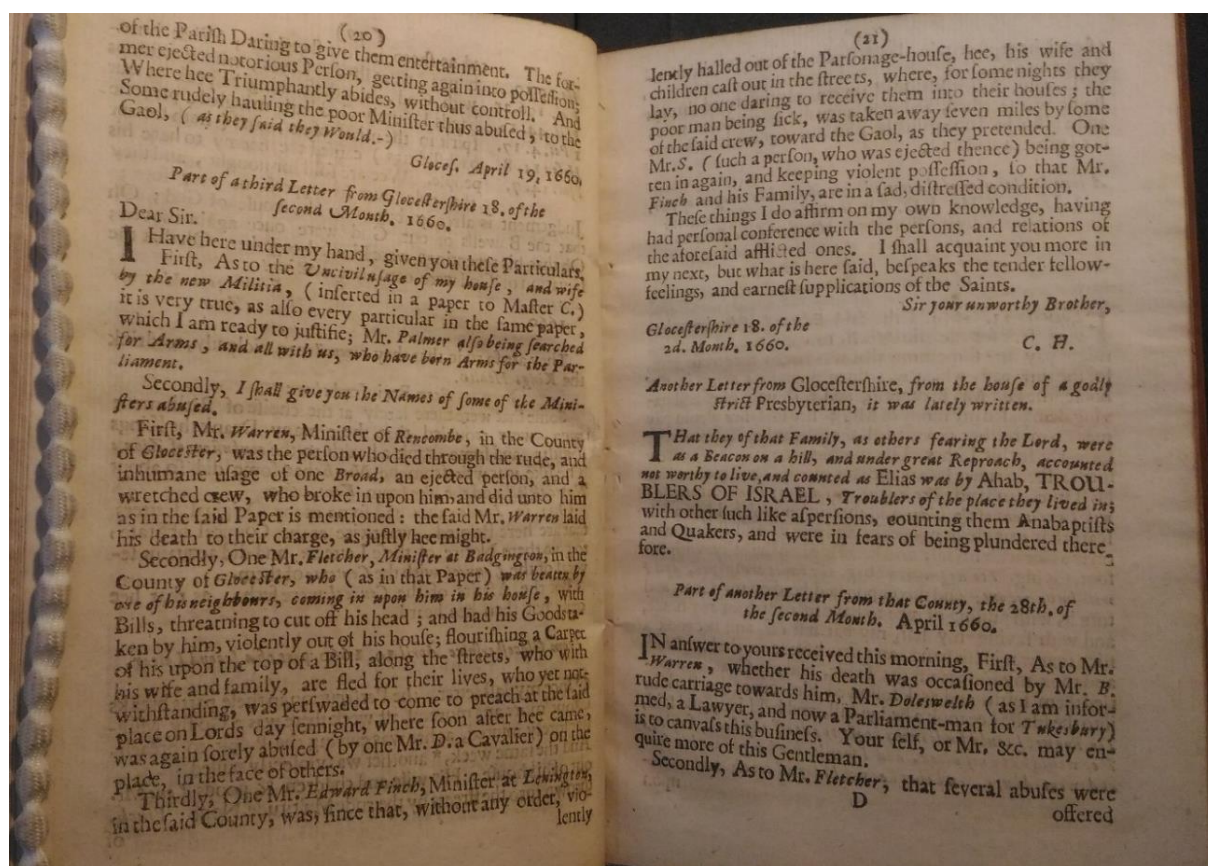 (20)
of the Pariſh Daring to give them entertainment. The for-
mer ejected notorious Perſon, getting again into poſſeſſion;
Where hee Triumphantly abides, without controll. And
Some rudely hauling the poor Miniſter thus abuſed, to the
Gaol, ( as they ſaid they Would.-)
Gloceſ. April 19, 1660.
Part of a third Letter from Gloceſterſhire 18. of the
ſecond Month. 1660.
Dear Sir.
I Have here under my hand, given you theſe Particulars,
Firſt, As to the Uncivil uſage of my houſe, and wife
by the new Militia, ( inſerted in a paper to Maſter C.)
it is very true, as alſo every particular in the ſame paper,
which I am ready to juſtifie; Mr. Palmer alſo being ſearched
for Arms, and all with us, who have born Arms for the Par-
liament.
Secondly, I ſhall give you the Names of ſome of the Mini-
ſters abuſed.
Firſt, Mr. Warren, Miniſter of Rencombe, in the County
of Gloceſter, was the perſon who died through the rude, and
inhumane uſage of one Broad, an ejected perſon, and a
wretched crew, who broke in upon him, and did unto him
as in the ſaid Paper is mentioned: the ſaid Mr. Warren laid
his death to their charge, as juſtly hee might.
Secondly, One Mr. Fletcher, Miniſter at Badgington, in the
County of Gloceſter, who ( as in that Paper ) was beaten by
one of his neighbours, coming in upon him in his houſe, with
Bills, threatning to cut off his head; and had his Goods ta-
ken by him, violently out of his houſe; flouriſhing a Carpet
of his upon the top of a Bill, along the ſtreets, who with
his wife and family, are fled for their lives, who yet not-
withſtanding, was perſwaded to come to preach at the ſaid
place on Lords day ſennight, where ſoon after hee came,
was again ſorely abuſed ( by one Mr. D. a Cavalier) on the
place, in the face of others.
Thirdly, One Mr. Edward Finch, Miniſter at Lenington,
in the ſaid County, was, ſince that, without any order, vio-
lently
(21)
lently halled out of the Parſonage-houſe, hee, his wife and
children caſt out in the ſtreets, where, for ſome nights they
lay, no one daring to receive them into their houſes; the
poor man being ſick, was taken away ſeven miles by ſome
of the ſaid crew, toward the Gaol, as they pretended. One
Mr. S. ( ſuch a perſon, who was ejected thence) being got-
ten in again, and keeping violent poſſeſſion, ſo that Mr.
Finch and his Family, are in a ſad, diſtreſſed condition.
Theſe things I do affirm on my own knowledge, having
had perſonal conference with the perſons, and relations of
the aforeſaid afflicted ones. I ſhall acquaint you more in
my next, but what is here ſaid, beſpeaks the tender fellow-
feelings, and earneſt ſupplications of the Saints.
Sir your unworthy Brother,
Gloceſterſhire 18. of the
2d. Month. 1660. C. H.
Another Letter from Gloceſterſhire, from the houſe of a godly
ſtrict Presbyterian, it was lately written.
THat they of that Family, as others fearing the Lord, were
as a Beacon on a hill, and under great Reproach, accounted
not worthy to live, and counted as Elias was by Ahab, TROU-
BLERS OF ISRAEL, Troublers of the place they lived in;
with other ſuch like aſperſions, counting them Anabaptiſts
and Quakers, and were in fears of being plundered there-
fore.
Part of another Letter from that County, the 28th. of
the ſecond Month. April 1660.
IN anſwer to yours received this morning, Firſt, As to Mr.
Warren, whether his death was occaſioned by Mr. B.
rude carriage towards him, Mr. Doleswelth ( as I am infor-
med, a Lawyer, and now a Parliament-man for Tukesbury)
is to canvaſs this buſineſs. Your ſelf, or Mr. &c. may en-
quire more of this Gentleman.
Secondly, As to Mr. Fletcher, that ſeveral abuſes were
D
offered